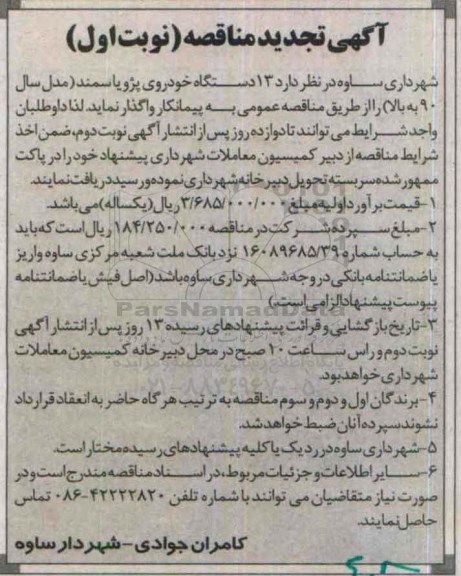 آگهی تجدید مناقصه (نوبت اول)
شهرداری ساوه در نظر دارد ۱۳ دستگاه خودروی پژو یا سمند (مدل سال
۹۰ به بالا) را از طریق مناقصه عمومی به پیمانکار واگذار نماید. لذا داوطلبان
واجد شرایط می توانند تا دوازده روز پس از انتشار آگهی نوبت دوم، ضمن اخذ
شرایط مناقصه از دبیر کمیسیون معاملات شهرداری پیشنهاد خود را در پاکت
ممهور شده سربسته تحویل دبیرخانه شهرداری نموده و رسید دریافت نمایند.
۱-قیمت برآورد اولیه مبلغ ۳/۶۸۵/۰۰۰/۰۰۰ ریال (یکساله) می باشد.
۲-مبلغ سپرده شرکت در مناقصه ۱۸۴/۲۵۰/۰۰۰ ریال است که باید
به حساب شماره ۱۶۰۸۹۶۸۵/۳۹ نزد بانک ملت شعبه مرکزی ساوه واریز
یا ضمانتنامه بانکی در وجه شهرداری ساوه باشد (اصل فیش یا ضمانتنامه
پیوست پیشنهاد الزامی است.)
ParsNamadData
۳-تاریخ بازگشایی و قرائت پیشنهادهای رسیده ۱۳ روز پس از انتشار آگهی
نوبت دوم و راس ساعت ۱۰ صبح در محل دبیرخانه کمیسیون معاملات
شهرداری خواهد بود.
۴-برندگان اول و دوم و سوم مناقصه به ترتیب هرگاه حاضر به انعقاد قرارداد
نشوند سپرده آنان ضبط خواهد شد.
۵-شهرداری ساوه در رد یک یا کلیه پیشنهادهای رسیده مختار است.
۶-سایر اطلاعات و جزئیات مربوط، در اسناد مناقصه مندرج است و در
صورت نیاز متقاضیان می توانند با شماره تلفن ۴۲۲۲۲۸۲۰-۰۸۶ تماس
حاصل نمایند.
کامران جوادی-شهردار ساوه